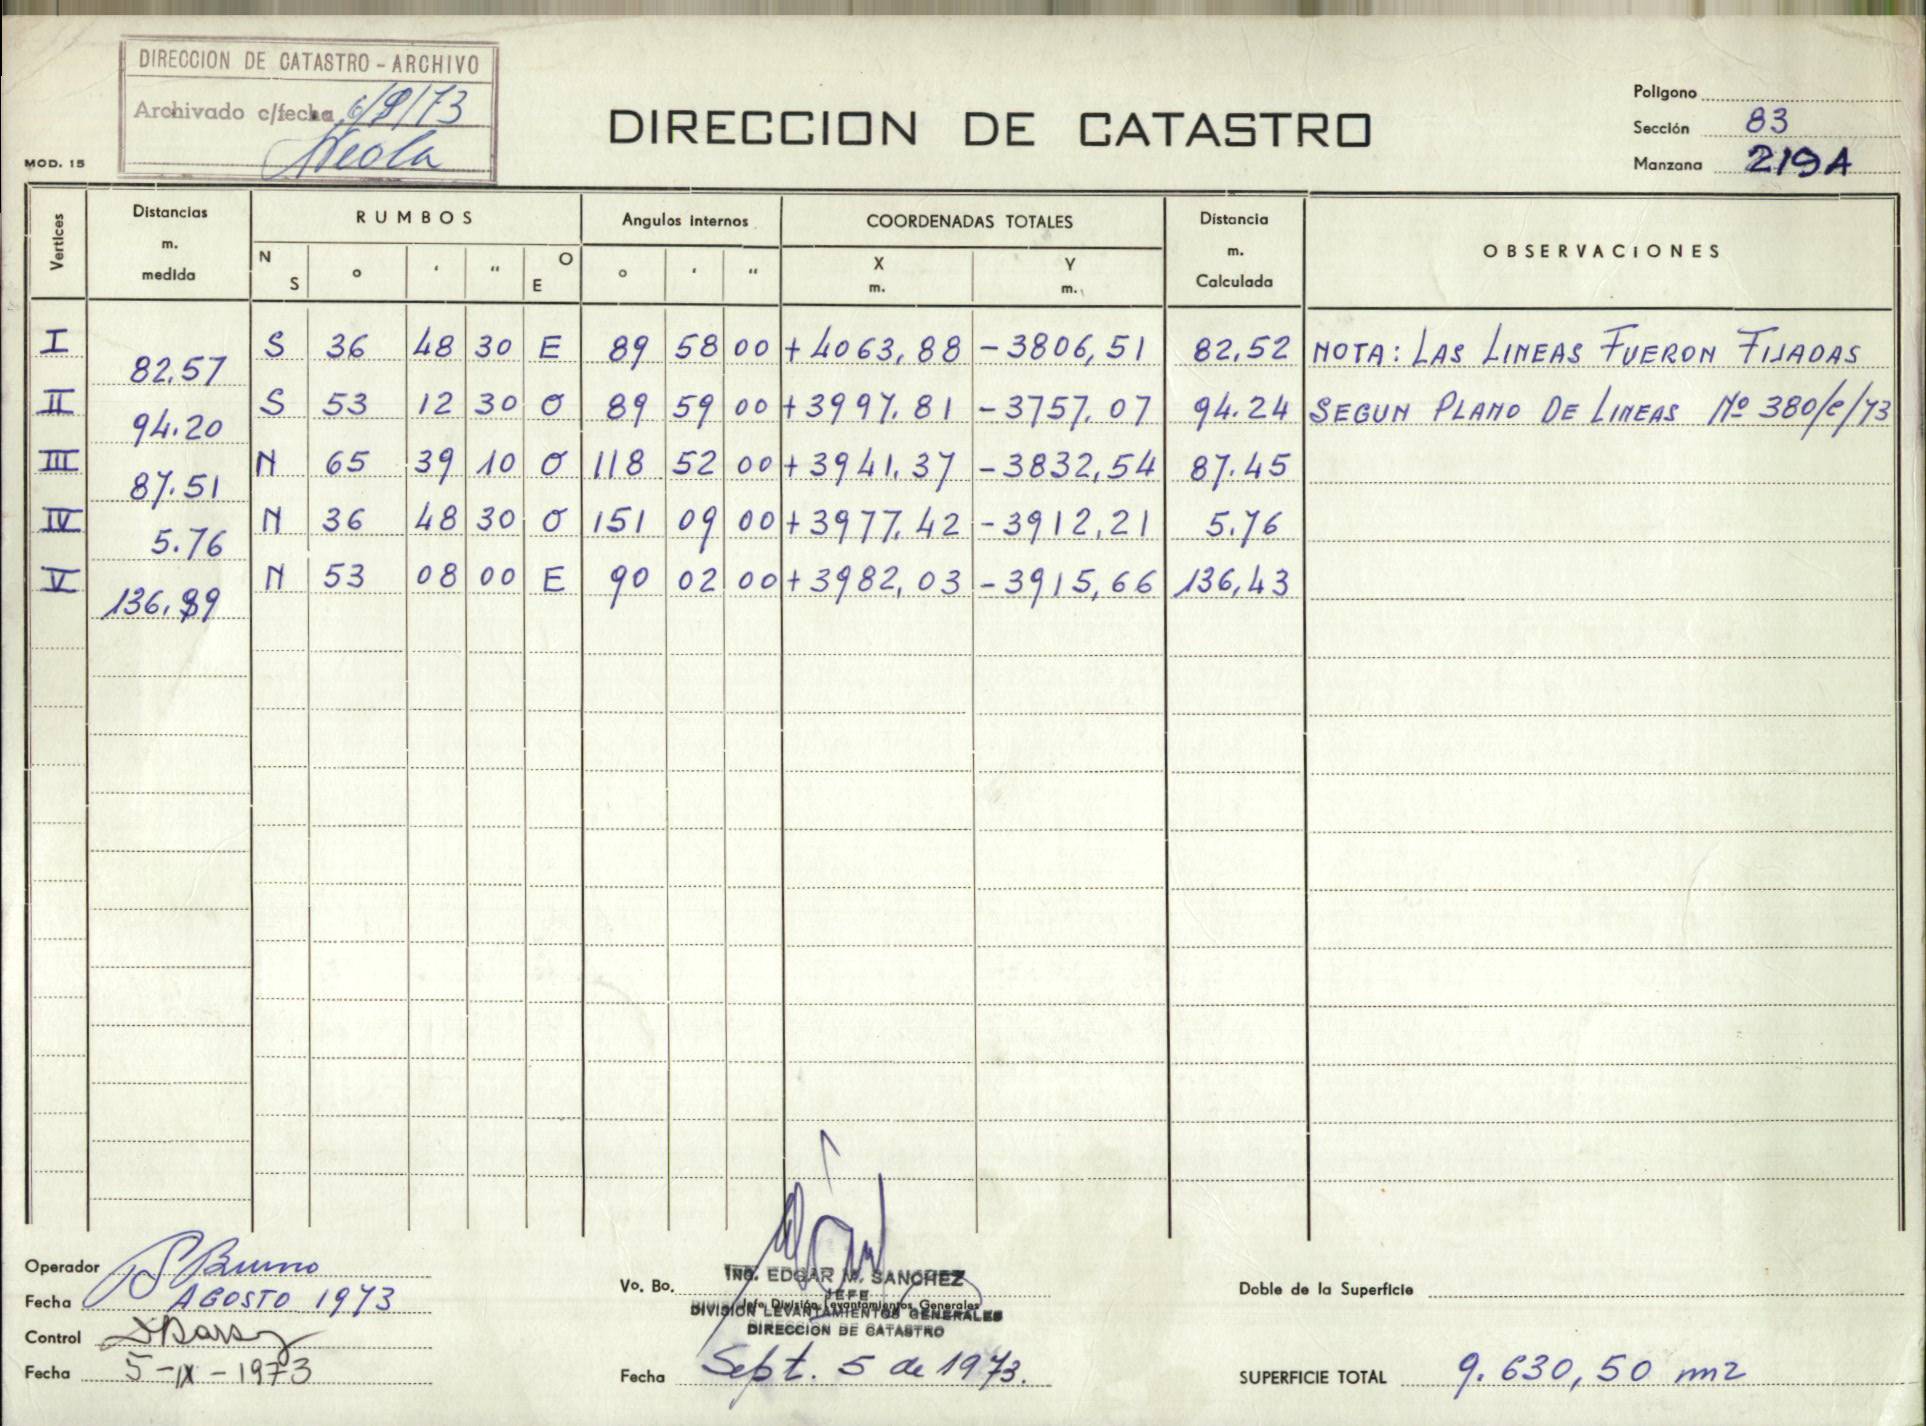 DIRECCION DE CATASTRO - ARCHIVO
Archivado c/fecha 6/9/73
MOD. 15
DIRECCION DE CATASTRO
Poligono
Sección 83
Manzana 219A
Vertices Distancias m. medida RUMBOS Angulos internos COORDENADAS TOTALES Distancia m. Calculada OBSERVACIONES
N S ° ' " O E ° ' " X m. Y m.
I S 36 48 30 E 89 58 00 +4063,88 -3806,51 82,52 NOTA: LAS LINEAS FUERON FIJADAS
82,57
II S 53 12 30 O 89 59 00 +3997,81 -3757,07 94.24 SEGUN PLANO DE LINEAS Nº 380/c/73
94.20
III N 65 39 10 O 118 52 00 +3941,37 -3832,54 87.45
87.51
IV N 36 48 30 O 151 09 00 +3977,42 -3912,21 5.76
5.76
V N 53 08 00 E 90 02 00 +3982,03 -3915,66 136,43
Operador Bruno
Fecha AGOSTO 1973
Control
Fecha 5-IX-1973
Vo. Bo. ING. EDGAR M. SANCHEZ
JEFE
Jefe División Levantamientos Generales
DIVISION LEVANTAMIENTOS GENERALES
DIRECCION DE CATASTRO
Fecha Sept. 5 de 1973.
Doble de la Superficie
SUPERFICIE TOTAL 9.630,50 m2